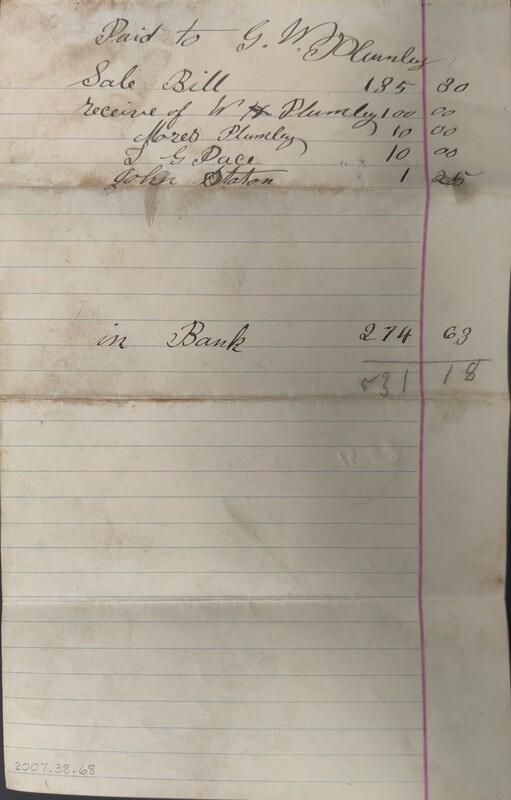 Paid to G. W. Plumley
Sale Bill 135 30
receive of W H Plumley 100 00
Mores Plumley 10 00
L G Pace " " 10 00
John Staton " 1 25
in Bank 274 63
531 18
2007.38.68